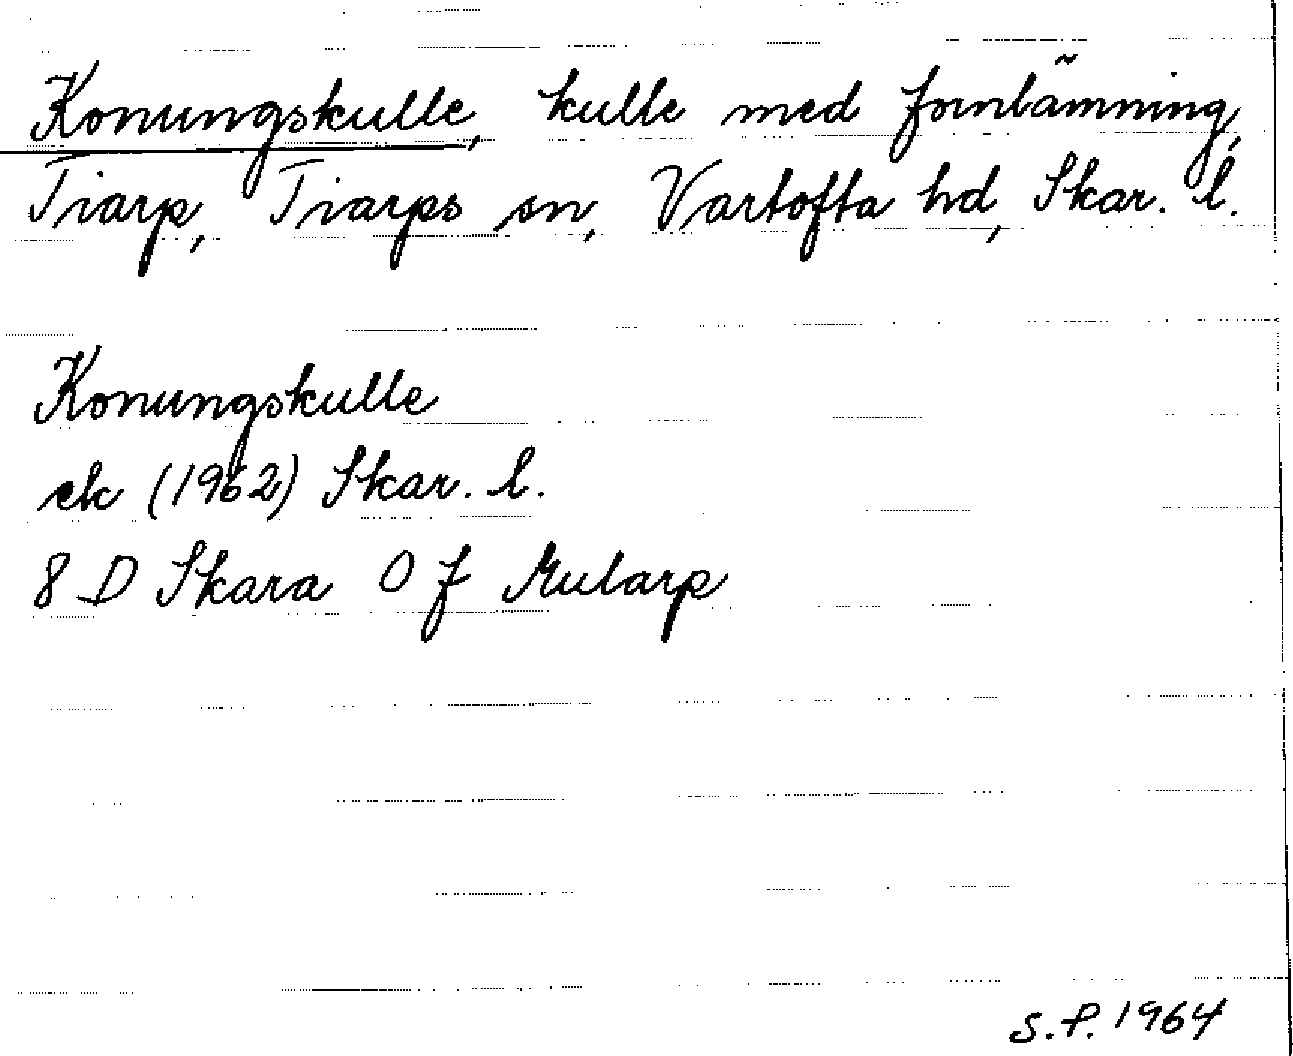 Konungskulle, kulle med fornlämning,
Tiarp, Tiarps sn, Vartofta hd, Skar. l.
Konungskulle
ek (1962) Skar. l.
8 D Skara 0 f Mularp
S.P. 1964